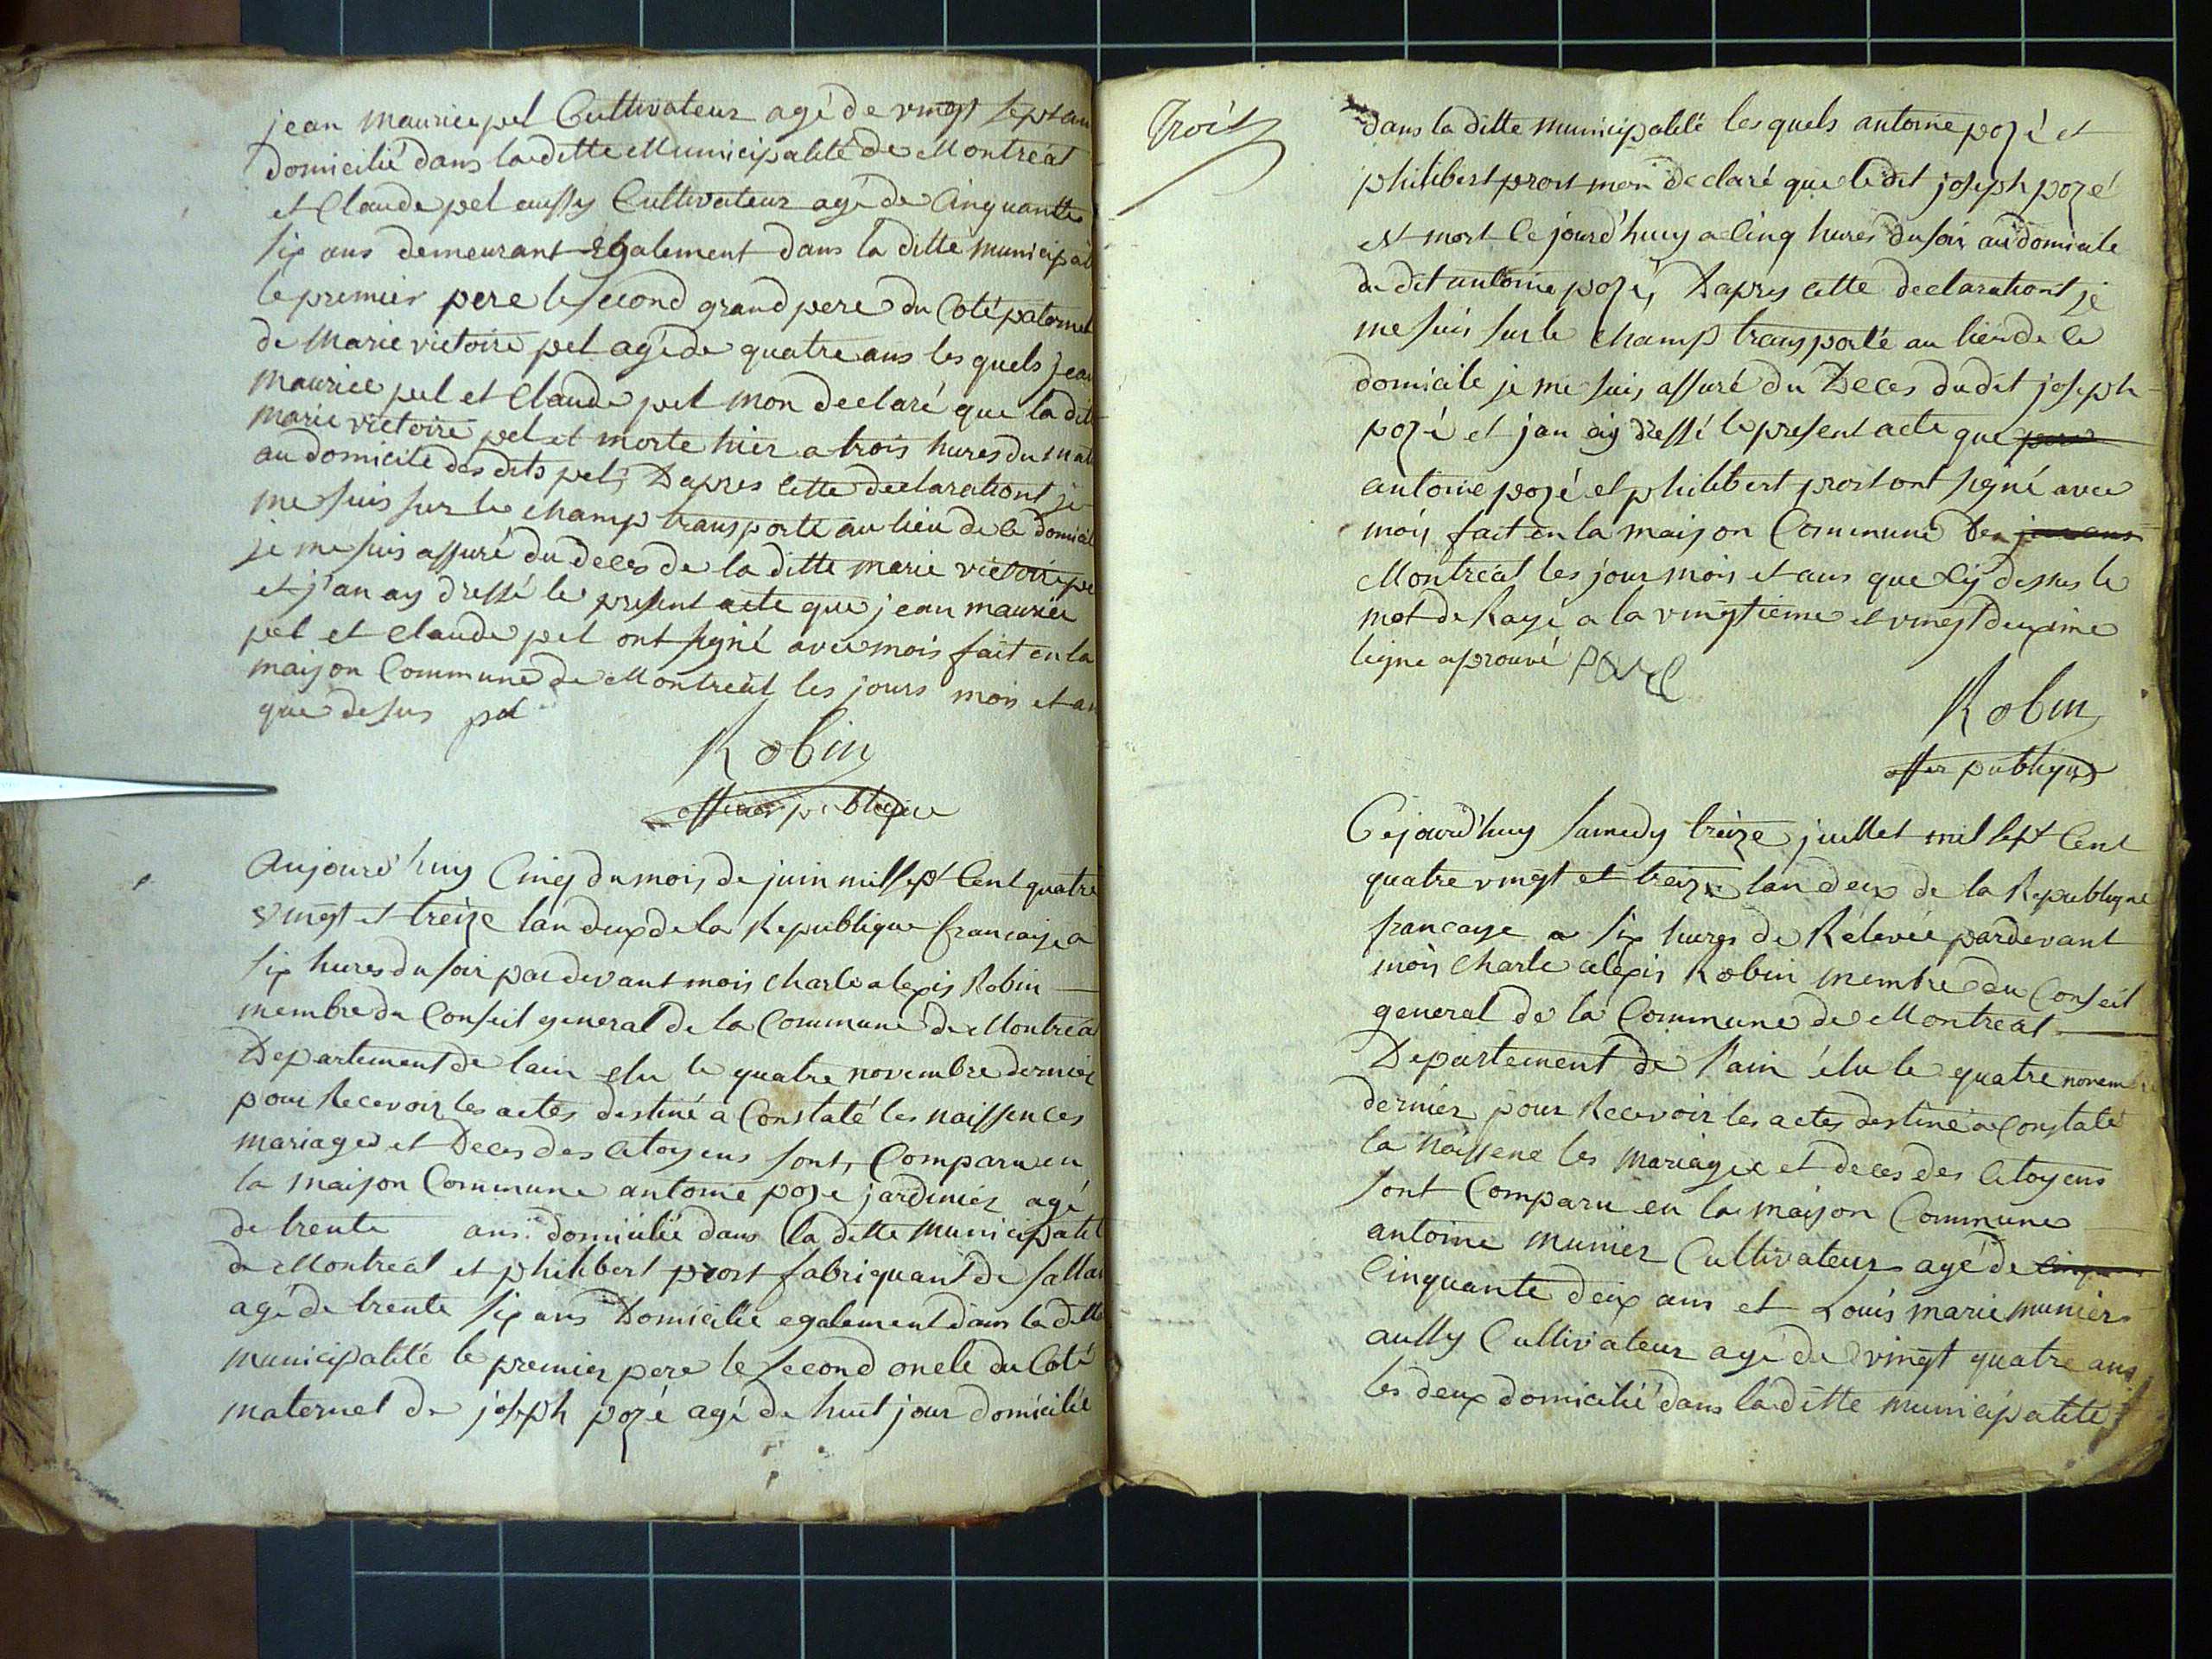 jean maurice pel Cultivateur agé de vingt sept an
domicilié dans la ditte Municipalité de Montreal
et Claude pel aussy Cultivateur agé de Cinquante
six ans demeurant Egalement dans la ditte municipal
le premier pere le second grand pere du Coté paternel
de Marie victoire pel agé de quatre ans les quels jean
maurice pel et Claude pel mon declaré que la dit
marie victoire pel et morte hier a trois hures du mat
au domicile des dits pel, Dapres cette declarationt je
me suis sur le champ transporte au lieu de ce domicil
je me suis assuré du deces de la ditte marie victoire pe
et j'an ay dressé le present acte que jean maurice
pel et Claude pel ont signé avec mois fait en la
maison Commune de Montreal les jours mois et an
que desus pel
Robin
officier publique
Aujourd'huy Cinq du mois de juin mil sept Cent quatre
vingt et treize lan deux de la Republique francaise a
six hures du soir par devant mois Charle alexis Robin
membre du Conseil general de la Commune de Montrea
Departement de lain elu le quatre novembre dernier
pour Recevoir les actes destiné a Constaté les naissences
mariages et Deces des Citoyens sont, Comparu en
la maison Commune antoine pozé jardinier agé
de trente ans domicilié dans la ditte municipalit
de Montreal et philibert prost fabriquant de
agé de trente six ans Domicilié egalement dans la ditte
municipalité le premier pere le second oncle du Coté
maternel de joseph pozé agé de huit jour domicilié
Trois
dans la ditte municipalité les quels antoine pozé et
philibert prost mon declaré que le dit joseph pozé
est mort Ce jourd'huy a Cinq hures du soir au domicile
du dit antoine pozé, Dapres cette declarationt je
me suis sur le champ transporté au lieu de ce
domicile je me suis assuré du Deces du dit joseph
pozé et jan ay dressé le present acte que
antoine pozé et philibert prost ont signé avec
mois fait en la maison Commune de
Montreal les jour mois et ans que Cy dessus le
mot de Rayé a la vingtieme et vingt deuxime
ligne aprouvé pozé
Robin
offier publique
Cejourd'huy samedy treize juillet mil sept Cent
quatre vingt et treize lan deux de la Republique
francaise a six hures de Rélevée pardevant
mois Charle alexis Robin membre du Conseil
general de la Commune de Montreal
Departement de l'ain élu le quatre novembre
dernier pour Recevoir les actes destiné a Constaté
la naissene les mariage et deces des Citoyens
sont Comparu en la maison Commune
antoine munier Cultivateur agé de
Cinquante deux ans et Louis marie munier
aussy Cultivateur agé de vingt quatre ans
les deux domicilié dans la ditte municipalité